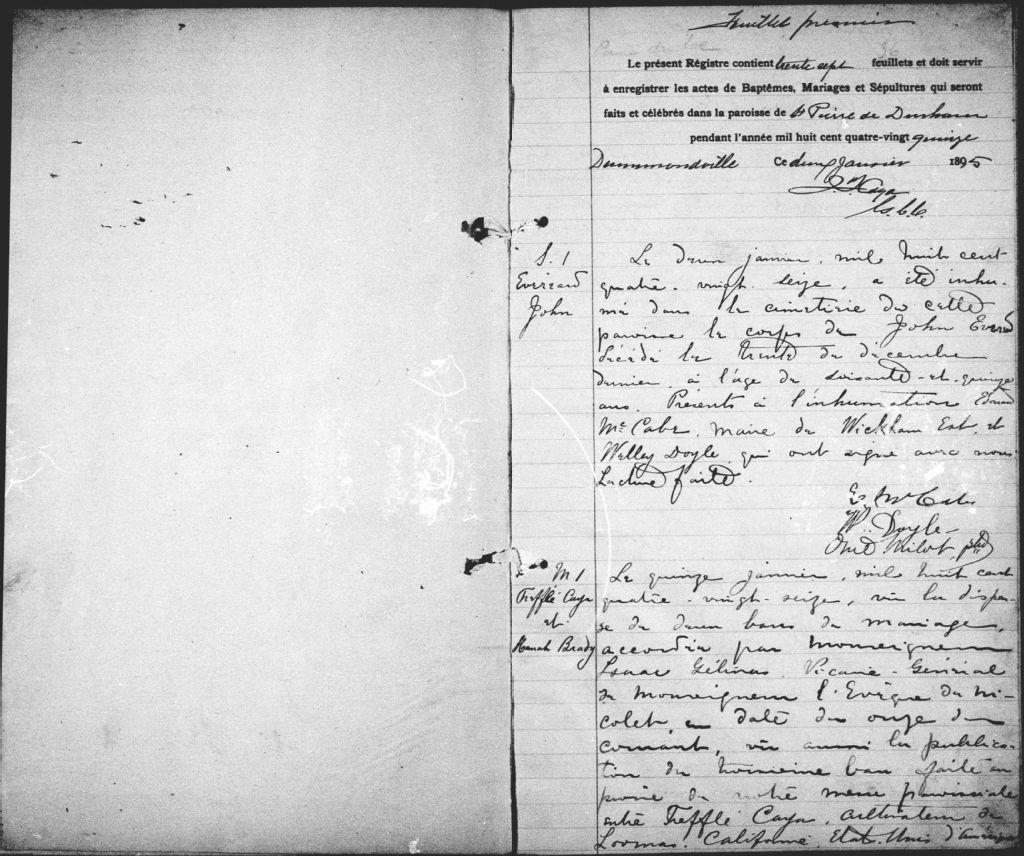 Feuillet premier
Le présent Régistre contient trente sept feuillets et doit servir
à enregistrer les actes de Baptêmes, Mariages et Sépultures qui seront
faits et célébrés dans la paroisse de St Pierre de Durham
pendant l'année mil huit cent quatre-vingt quinze
Drummondville Ce deux Janvier 1895
S. 1
Everard
John
Le deux janvier, mil huit cent
quatre-vingt-seize, a été inhu-
mé dans le cimetière de cette
paroisse le corps de John Everard
décédé le trente de décembre
dernier, à l'âge de soixante-et-quinze
ans. Présents à l'inhumation Edouard
Mc Cabe, maire de Wickham Est, et
Welley Doyle qui ont signé avec nous.
Lecture faite.
Ed. McCabe
W. Doyle
Milot ptre
M 1
Treffle Caya
et
Hanah Brady
Le quinze janvier, mil huit cent
quatre-vingt-seize, vu la dispen-
se de deux bans de mariage,
accordée par Monseigneur
Isaac Gélinas, Vicaire-Général
de Monseigneur l'Evêque de Ni-
colet, en date du onze du
courant, vu aussi la publica-
tion du troisième ban faite au
prône de notre messe paroissiale
entre Treffle Caya, cultivateur de
Loomas, Californie, Etats-Unis d'Amérique